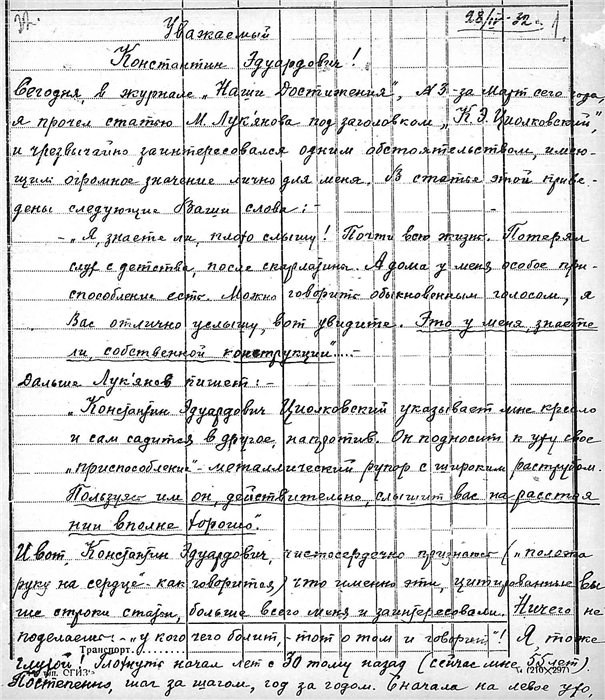 28/IV-32 г. 1.
Уважаемый
Константин Эдуардович!
Сегодня, в журнале „Наши Достижения", №3-за Март сего года,
я прочел статью М. Лук'янова под заголовком „К.Э. Циолковский",
и чрезвычайно заинтересовался одним обстоятельством, имею-
щим огромное значение лично для меня. В статье этой приве-
дены следующие Ваши слова:-
-„Я, знаете ли, плохо слышу! Почти всю жизнь. Потерял
слух с детства, после скарлатины. А дома у меня особое при-
способление есть. Можно говорить обыкновенным голосом, я
Вас отлично услышу, вот увидите. Это у меня, знаете
ли, собственной конструкции"....-
Дальше Лук'янов пишет:-
„Константин Эдуардович Циолковский указывает мне кресло
и сам садится в другое, напротив. Он подносит к уху свое
„приспособление"-металлический рупор с широким раструбом.
Пользуясь им он, действительно, слышит вас на расстоя-
нии вполне хорошо".
И вот, Константин Эдуардович, чистосердечно признаюсь („положа
руку на сердце"-как говорится) что именно эти, цитированные вы-
ше строки статьи, больше всего меня и заинтересовали. Ничего не
поделаешь:-„у кого чего болит,-тот о том и говорит"! Я тоже
Транспорт
глухой! Глохнуть начал лет с 30 тому назад (сейчас мне 55 лет).
тип. ОГИЗ т. (210×297)
Постепенно, шаг за шагом, год за годом. Сначала на левое ухо,